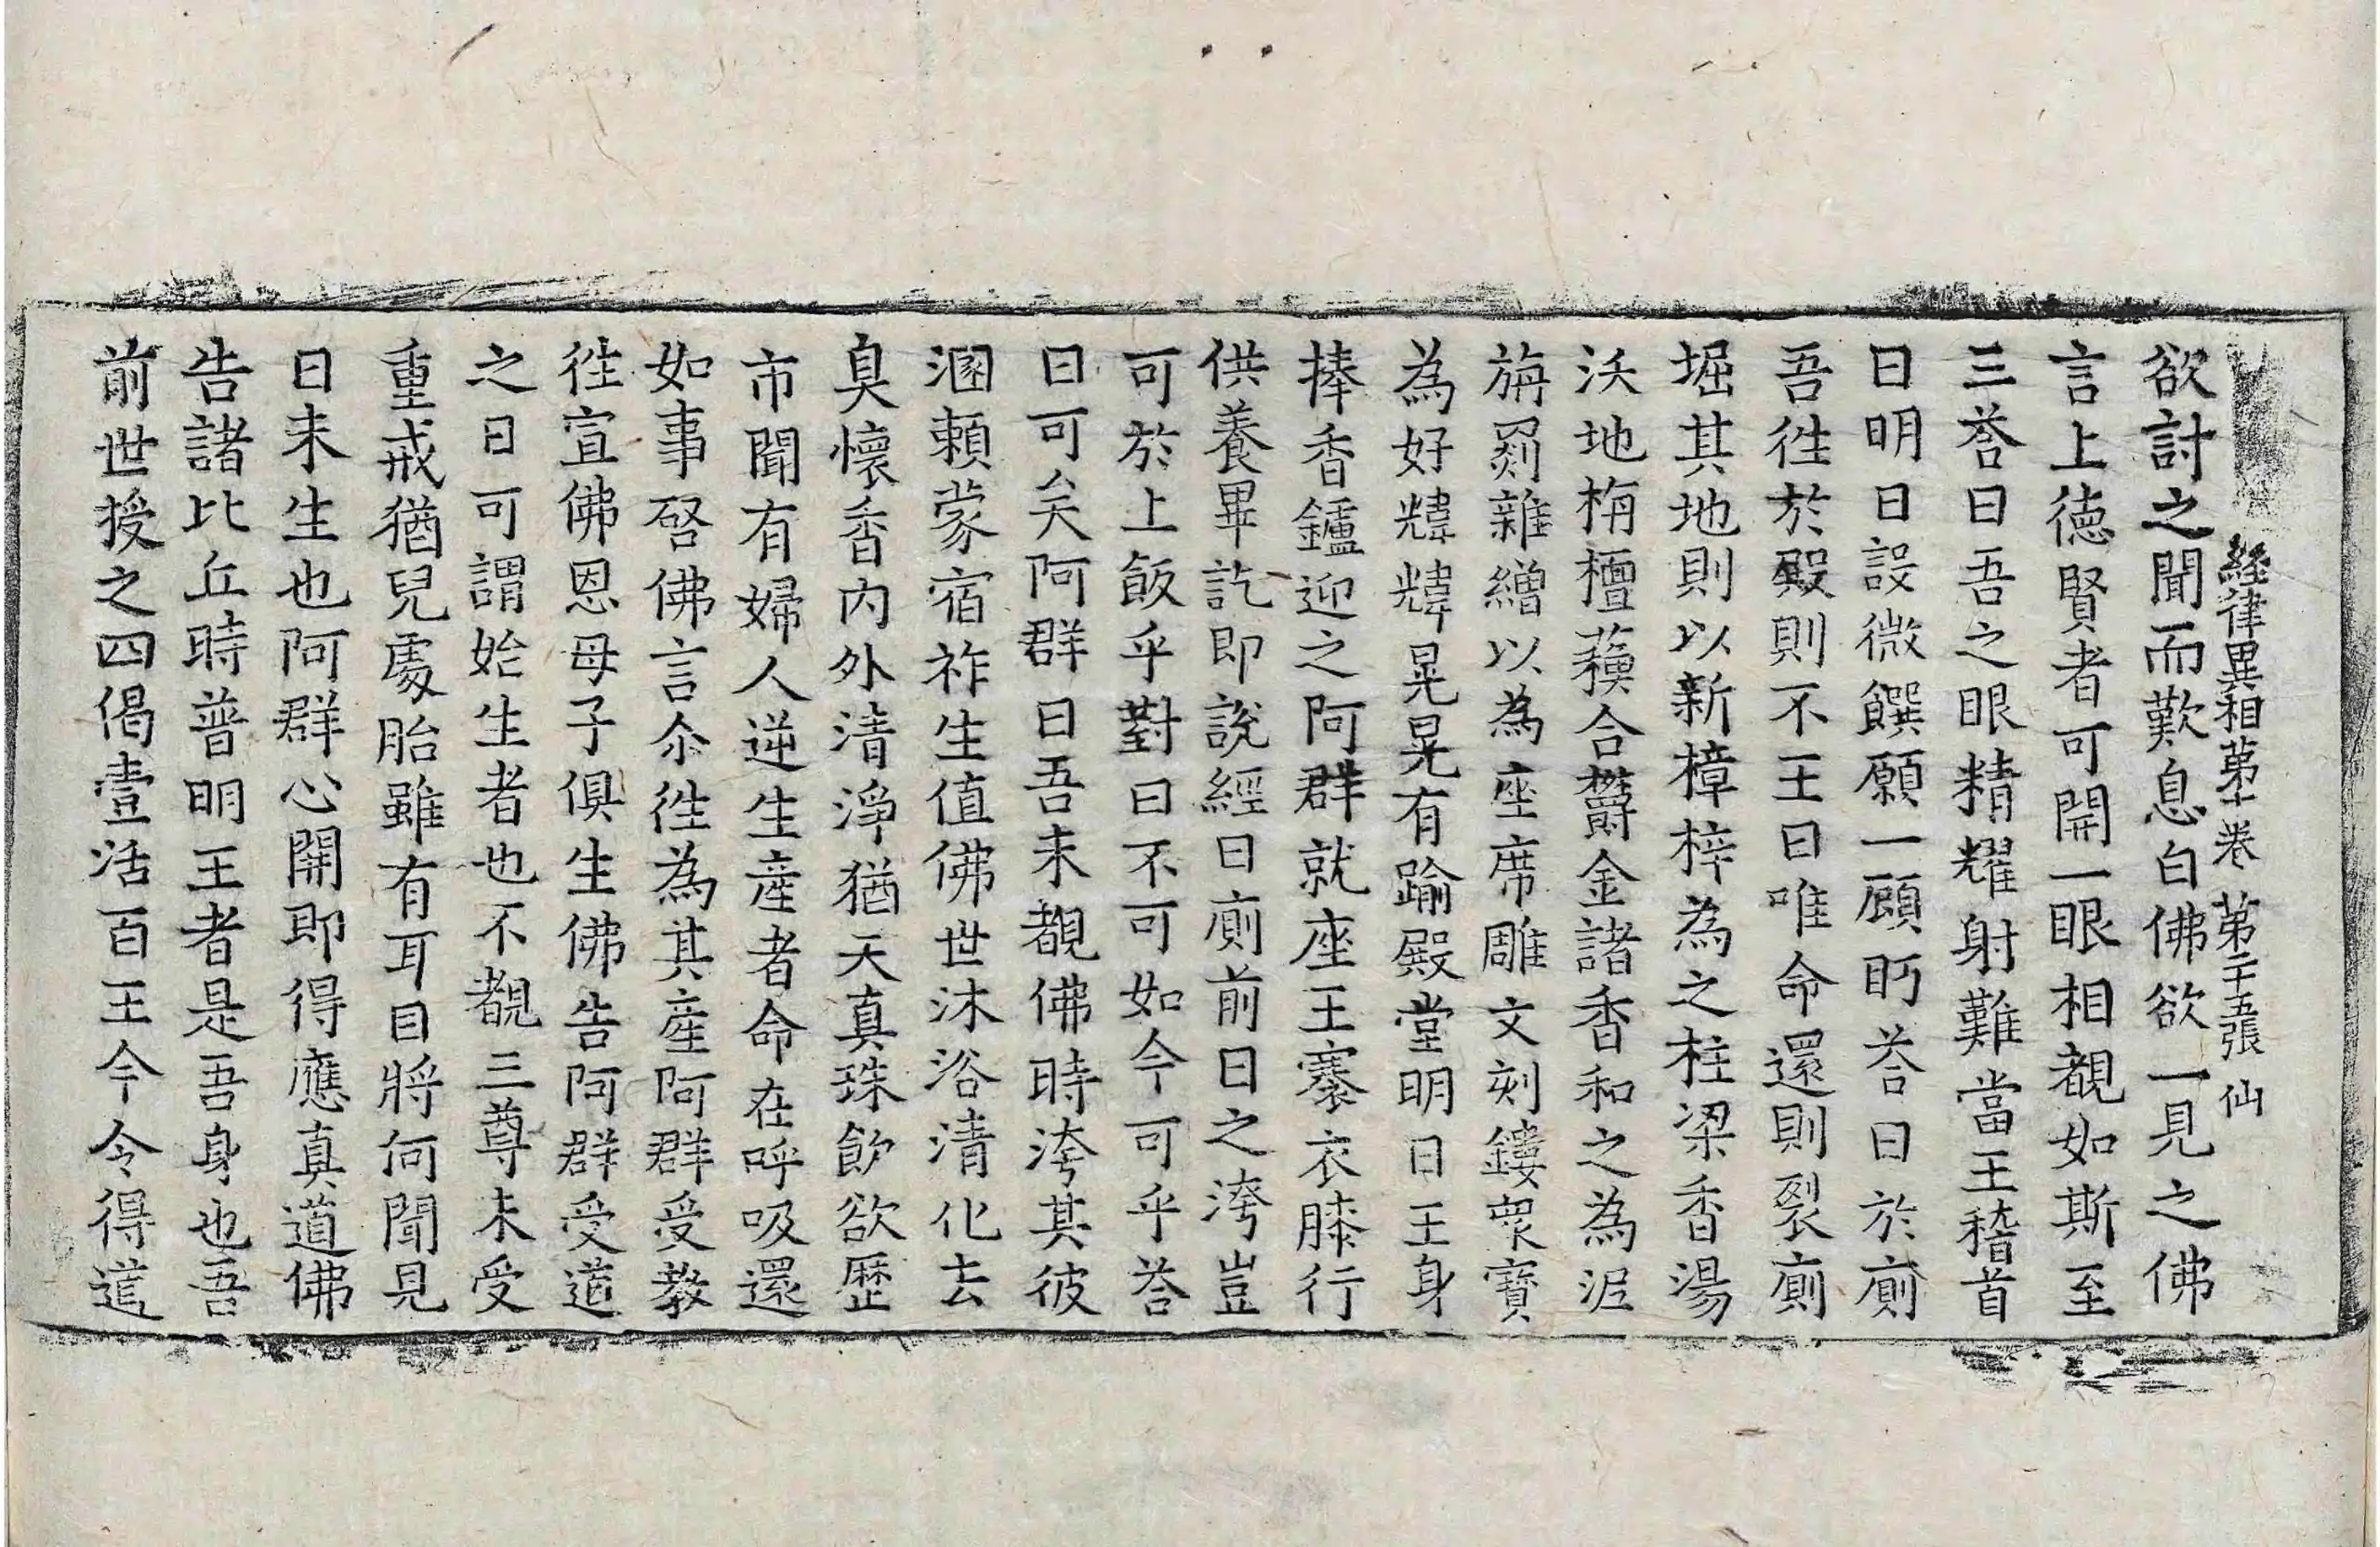 経律異相第十卷 第二十五張 仙
欲討之聞而歎息白佛欲一見之佛
言上德賢者可開一眼相覩如斯至
三荅曰吾之眼精耀射難當王稽首
曰明日設微饌願一顧眄荅曰於廁
吾徃於殿則不王曰唯命還則裂廁
堀其地則以新樟梓為之柱梁香湯
沃地栴檀蘓合欝金諸香和之為泥
旃罽雜繒以為座席雕文刻鏤衆寶
為好煒煒晃晃有踰殿堂明日王身
捧香鑪迎之阿群就座王褰衣膝行
供養畢訖即說經曰廁前日之洿豈
可於上飯乎對曰不可如今可乎荅
曰可矣阿群曰吾未覩佛時洿其彼
溷賴蒙宿祚生值佛世沐浴清化去
臭懷香内外清淨猶天真珠飮欲歷
市聞有婦人逆生産者命在呼吸還
如事啓佛言尒徃為其産阿群受教
徃宣佛恩母子俱生佛告阿群受道
之日可謂始生者也不覩三尊未受
重戒猶兒處胎雖有耳目將何聞見
日未生也阿群心開即得應真道佛
告諸比丘時普明王者是吾身也吾
前世授之四偈壹活百王今令得道